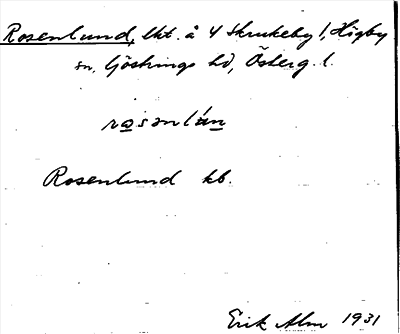 Rosenlund, lht. å 4 Skrukeby l, Högby
sn, Göstrings hd, Österg. l.
rosənlún
Rosenlund kb.
Erik Alm 1931